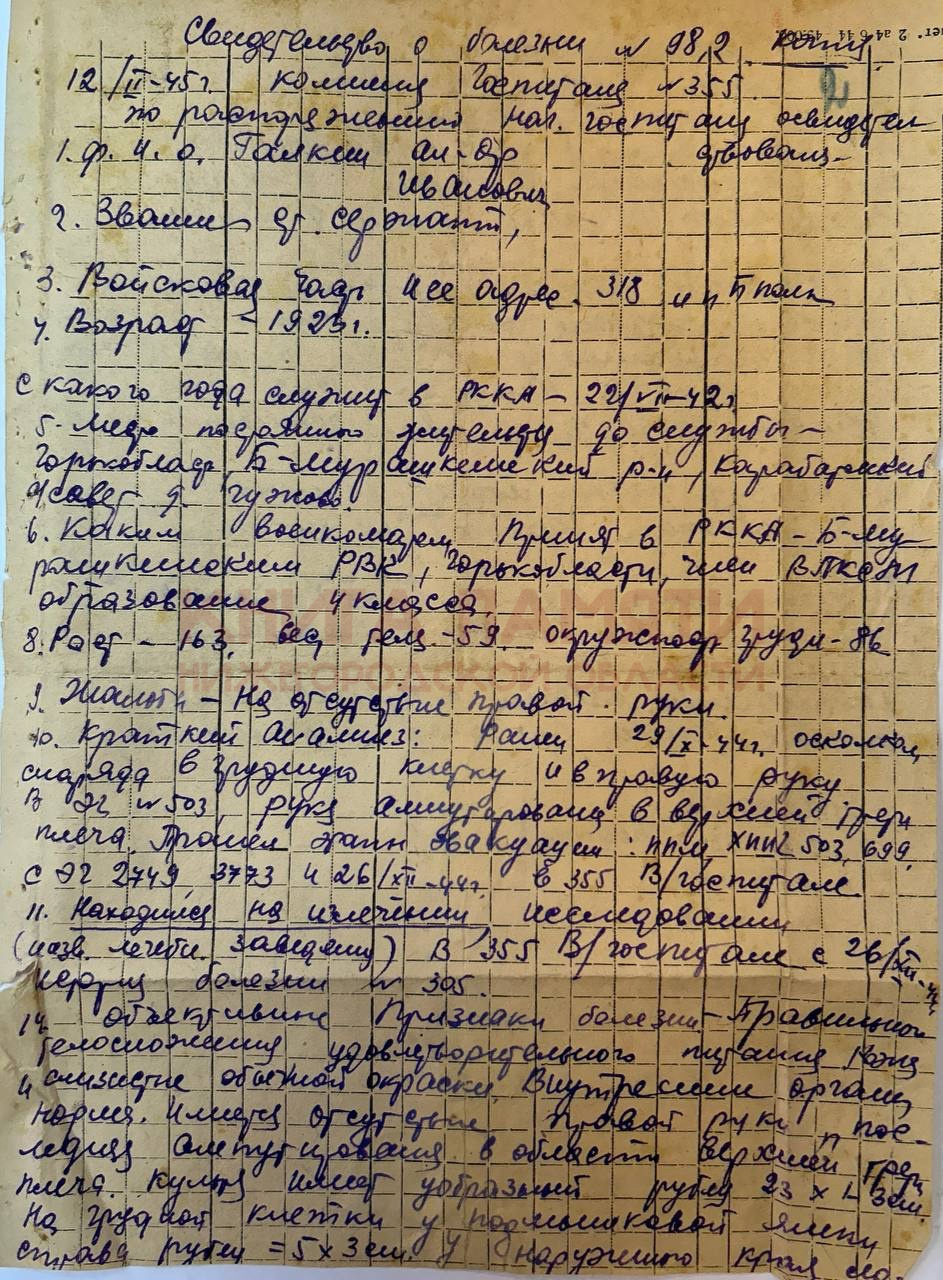 Свидетельство о болезни №98,2 копия
12/II-45г. комиссия Госпиталя №355
по распоряжению нач. госпиталя освидетель
1. Ф. И. О. Галкин Ал-др ствован
Иванович
2. Звание ст. сержант,
3. Войсковая часть и её адрес. 318 полк
4. Возраст - 1923г.
С какого года служит в РККА - 22/VII-42г
5. Место постоянного жительства до службы -
Горькобласть, Б-Мурашкинский р-н, Карабатовский
с/совет д. Чужово.
6. Каким военкоматом Принят в РККА - Б-Му
рашкинским РВК, Горькобласти, член ВЛКСМ
образование 4 класса.
8. Рост - 163, вес тела - 59, окружность груди - 86
КНИГА ПАМЯТИ
НИЖЕГОРОДСКОЙ ОБЛАСТИ
9. Жалобы - На отсутствие правой руки.
10. Краткий Анализ: Ранен 29/X-44г. осколком
снаряда в грудную клетку и в правую руку
В ЭГ №503, рука ампутирована в верхней трети
плеча. Прошел этапы эвакуации: ппм, 503, 699,
с ЭГ 2749, 3773 и 26/XII-44г. в 355 В/госпитале
11. Находился на излечении исследовании
(назв. лечебн. заведения) В 355 В/госпитале с 26/XII-44
болезни № 305.
14. Объективные Признаки болезни - Правильного
телосложения удовлетворительного питания Кожа
и слизистые обычной окраски. Внутренние органы
норма. Имеется отсутствие правой руки, пос-
ледняя ампутирована в области верхней трети
плеча. Культя имеет рубец 23 x 3см
На грудной клетки у подмышковой ямки
справа рубец = 5x3см. У наружного края ло-